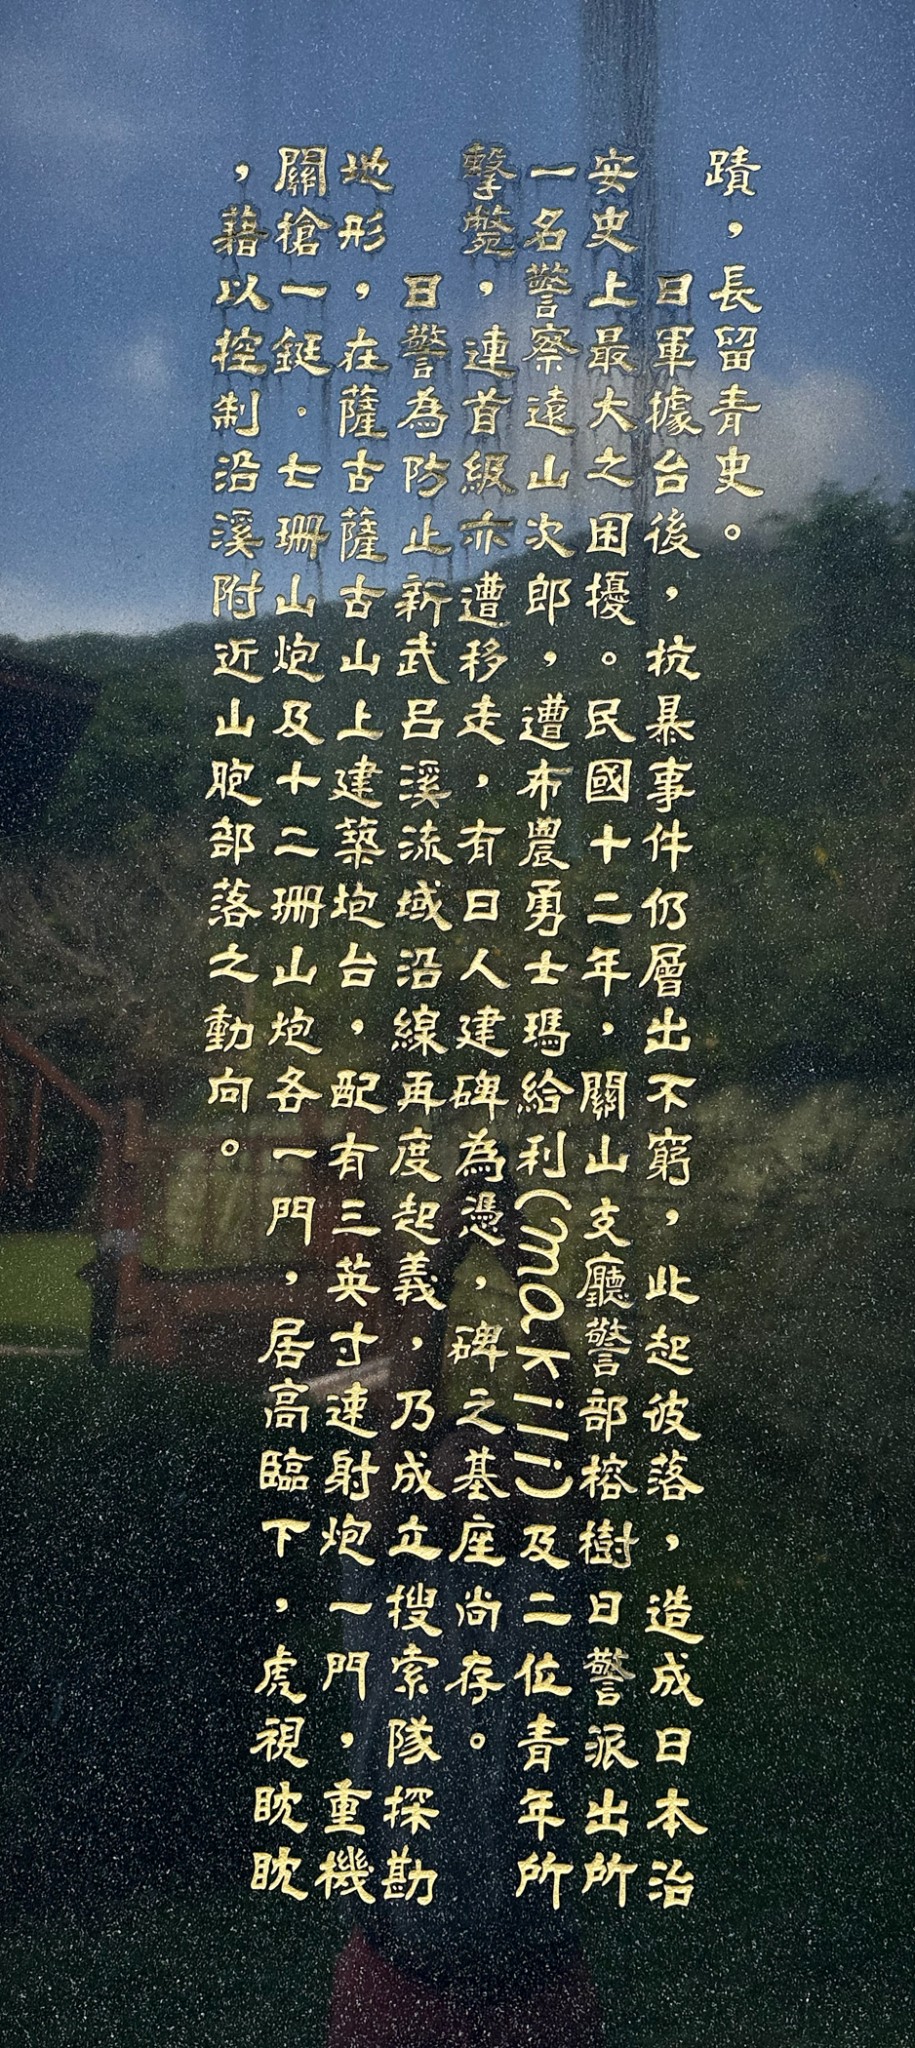 蹟，長留青史。
日軍據台後，抗暴事件仍層出不窮，此起彼落，造成日本治
安史上最大之困擾。民國十二年，關山支廳警部榕樹日警派出所
一名警察遠山次郎，遭布農勇士瑪給利(makili)及二位青年所
擊斃，連首級亦遭移走，有日人建碑為憑，碑之基座尚存。
日警為防止新武呂溪流域沿線再度起義，乃成立搜索隊探勘
地形，在薩古薩古山上建築炮台，配有三英寸速射炮一門，重機
關槍一鋌．七珊山炮及十二珊山炮各一門，居高臨下，虎視眈眈
，藉以控制沿溪附近山胞部落之動向。